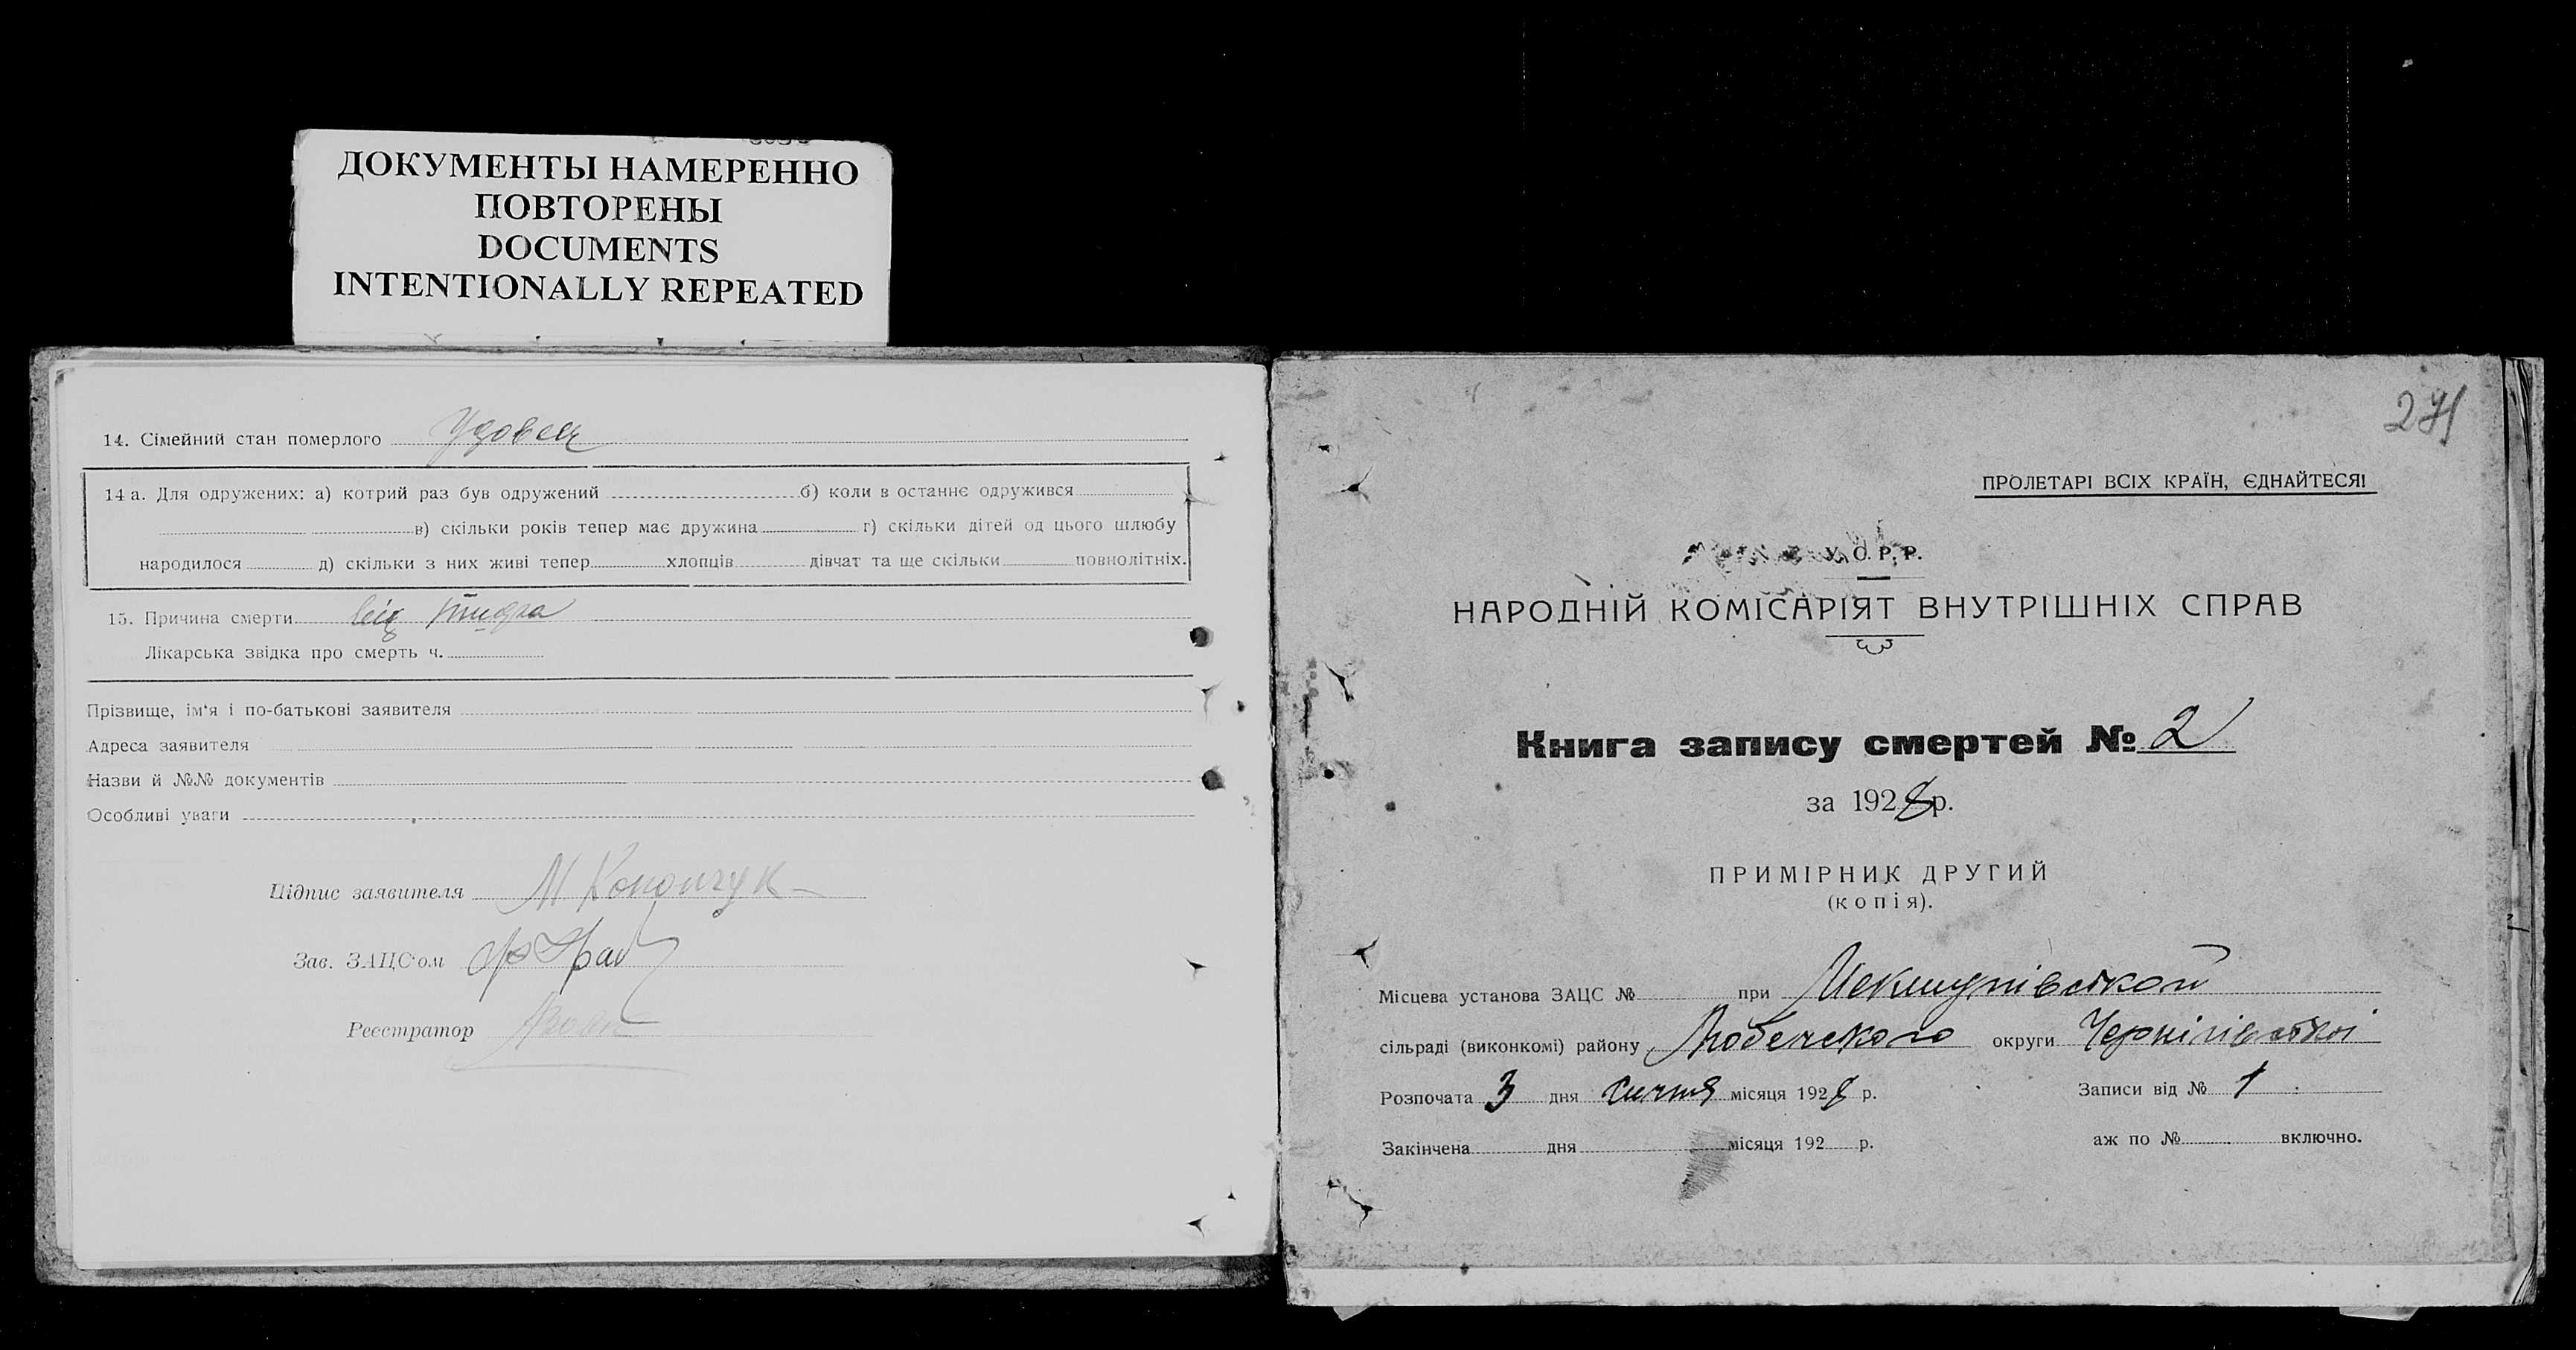 ДОКУМЕНТЫ НАМЕРЕННО
ПОВТОРЕНЫ
DOCUMENTS
INTENTIONALLY REPEATED
14. Сімейний стан померлого Удовец
14 а. Для одружених: а) котрий раз був одружений б) коли в останнє одружився
в) скільки років тепер має дружина г) скільки дітей од цього шлюбу
народилося д) скільки з них живі тепер хлопців дівчат та ще скільки повнолітніх.
15. Причина смерти від тифа
Лікарська звідка про смерть ч.
Прізвище, ім'я і по-батькові заявителя
Адреса заявителя
Назви й №№ документів
Особливі уваги
Підпис заявителя М Конончук
Зав. ЗАЦС'ом
Реєстратор
271
ПРОЛЕТАРІ ВСІХ КРАЇН, ЄДНАЙТЕСЯ!
У.С.Р.Р.
НАРОДНІЙ КОМІСАРІЯТ ВНУТРІШНІХ СПРАВ
Книга запису смертей № 2
за 1928 р.
ПРИМІРНИК ДРУГИЙ
(копія).
Місцева установа ЗАЦС № при
сільраді (виконкомі) району Любечского округи Чернігівської
Розпочата 3 дня січня місяця 1928 р. Записи від № 1
Закінчена дня місяця 192 р. аж по № включно.